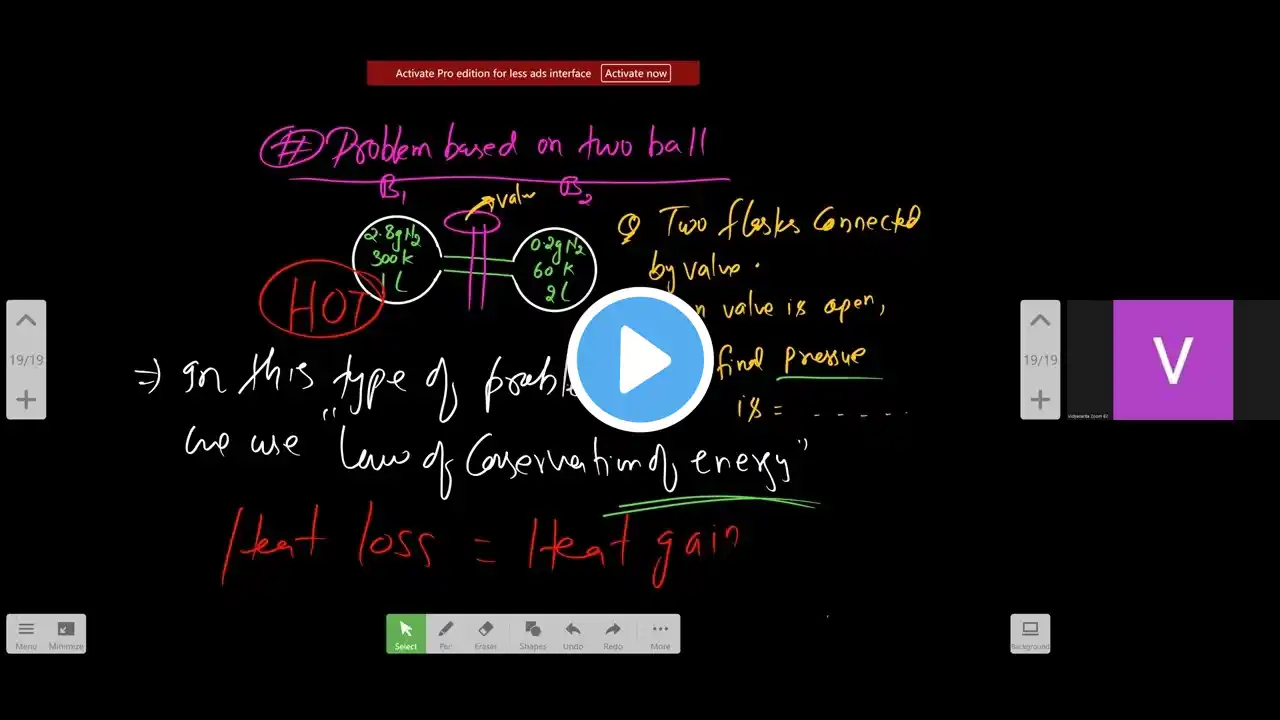 Activate Pro edition for less ads interface Activate now
# Problem based on two ball
B1 B2
valve
2.8g N2
300 K
1 L
0.2g N2
60 K
2 L
HOT
Q Two flasks Connected
by valve.
valve is open,
final pressure
is = - - - - -
⇒ In this type of
we use "Law of Conservation of energy"
Heat loss = Heat gain
19/19
19/19
V
Menu Minimize
Select Pen Eraser Shapes Undo Redo More
Background